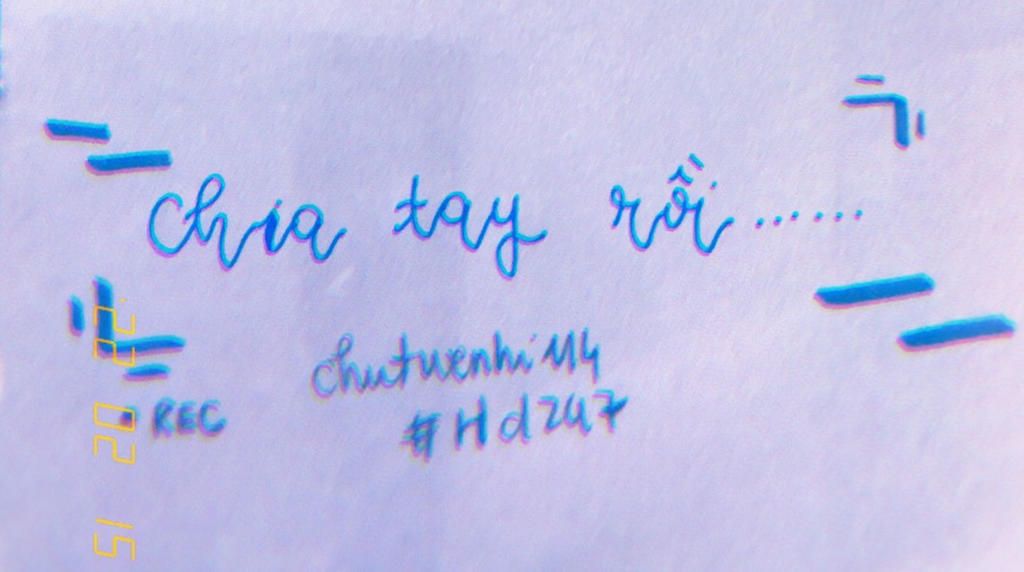 chia tay rồi......
chutuenhi114
#Hd247
REC
15 02 22.